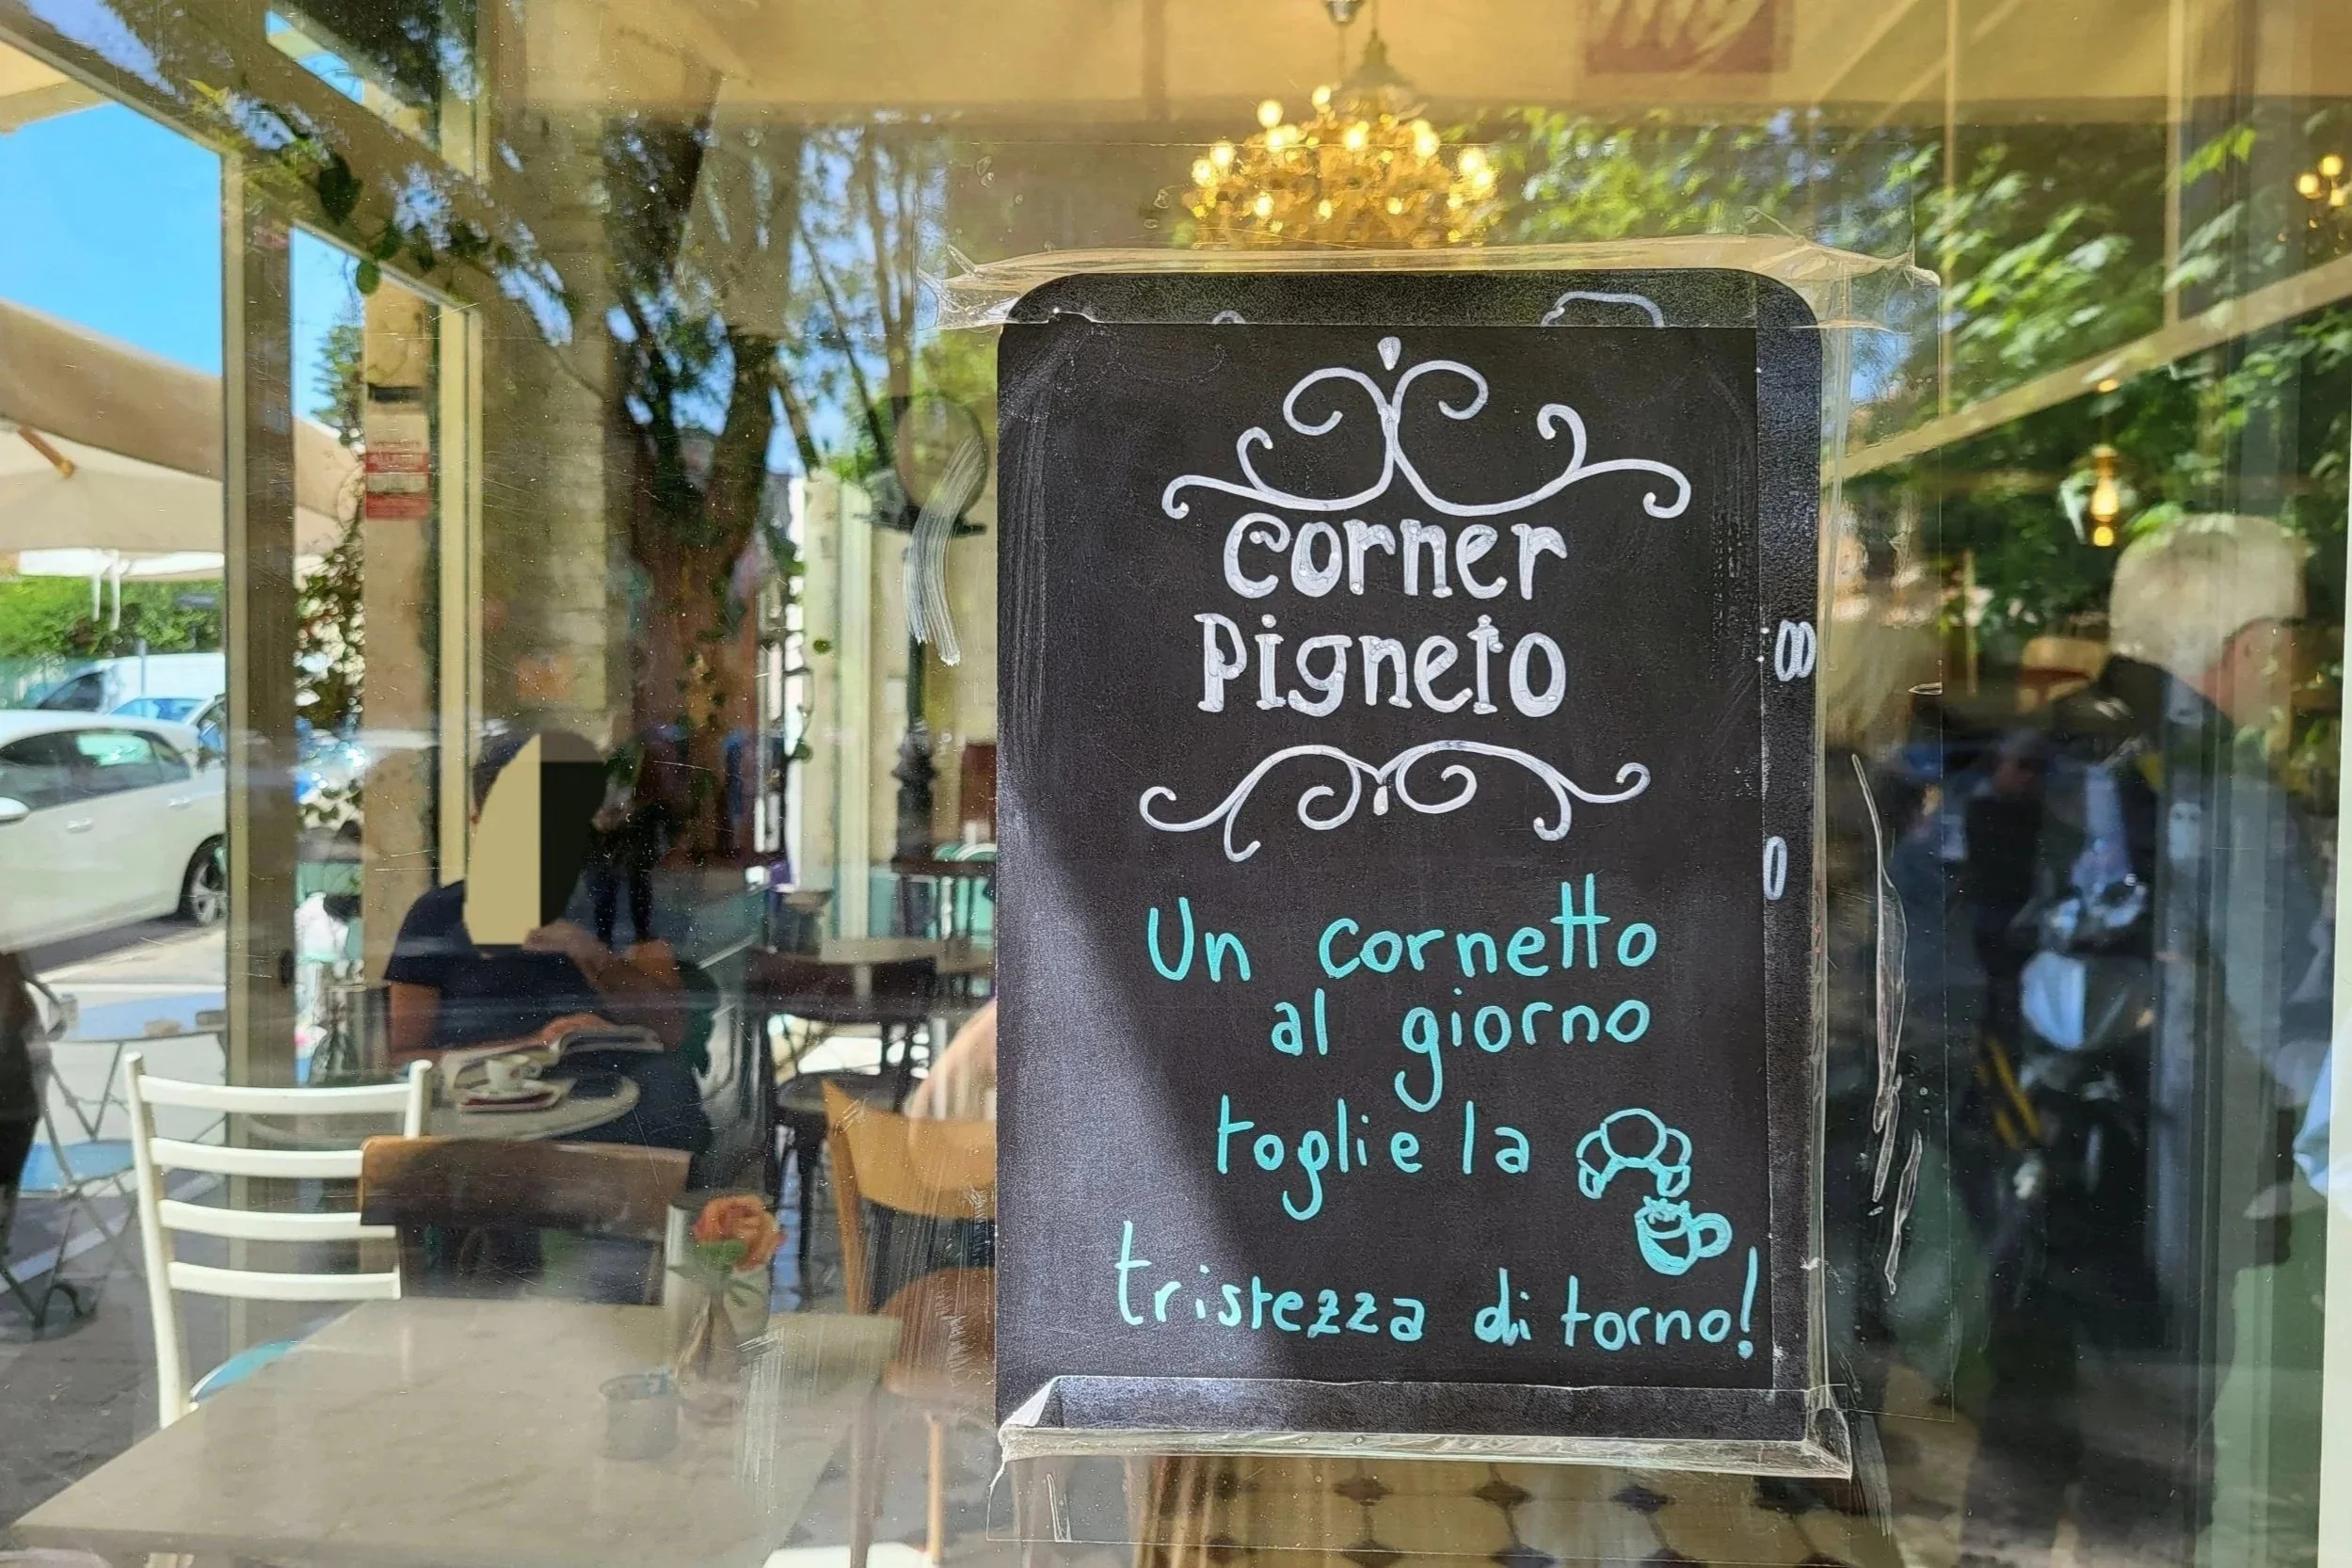 Corner
Pigneto
Un cornetto
al giorno
toglie la
tristezza di torno!